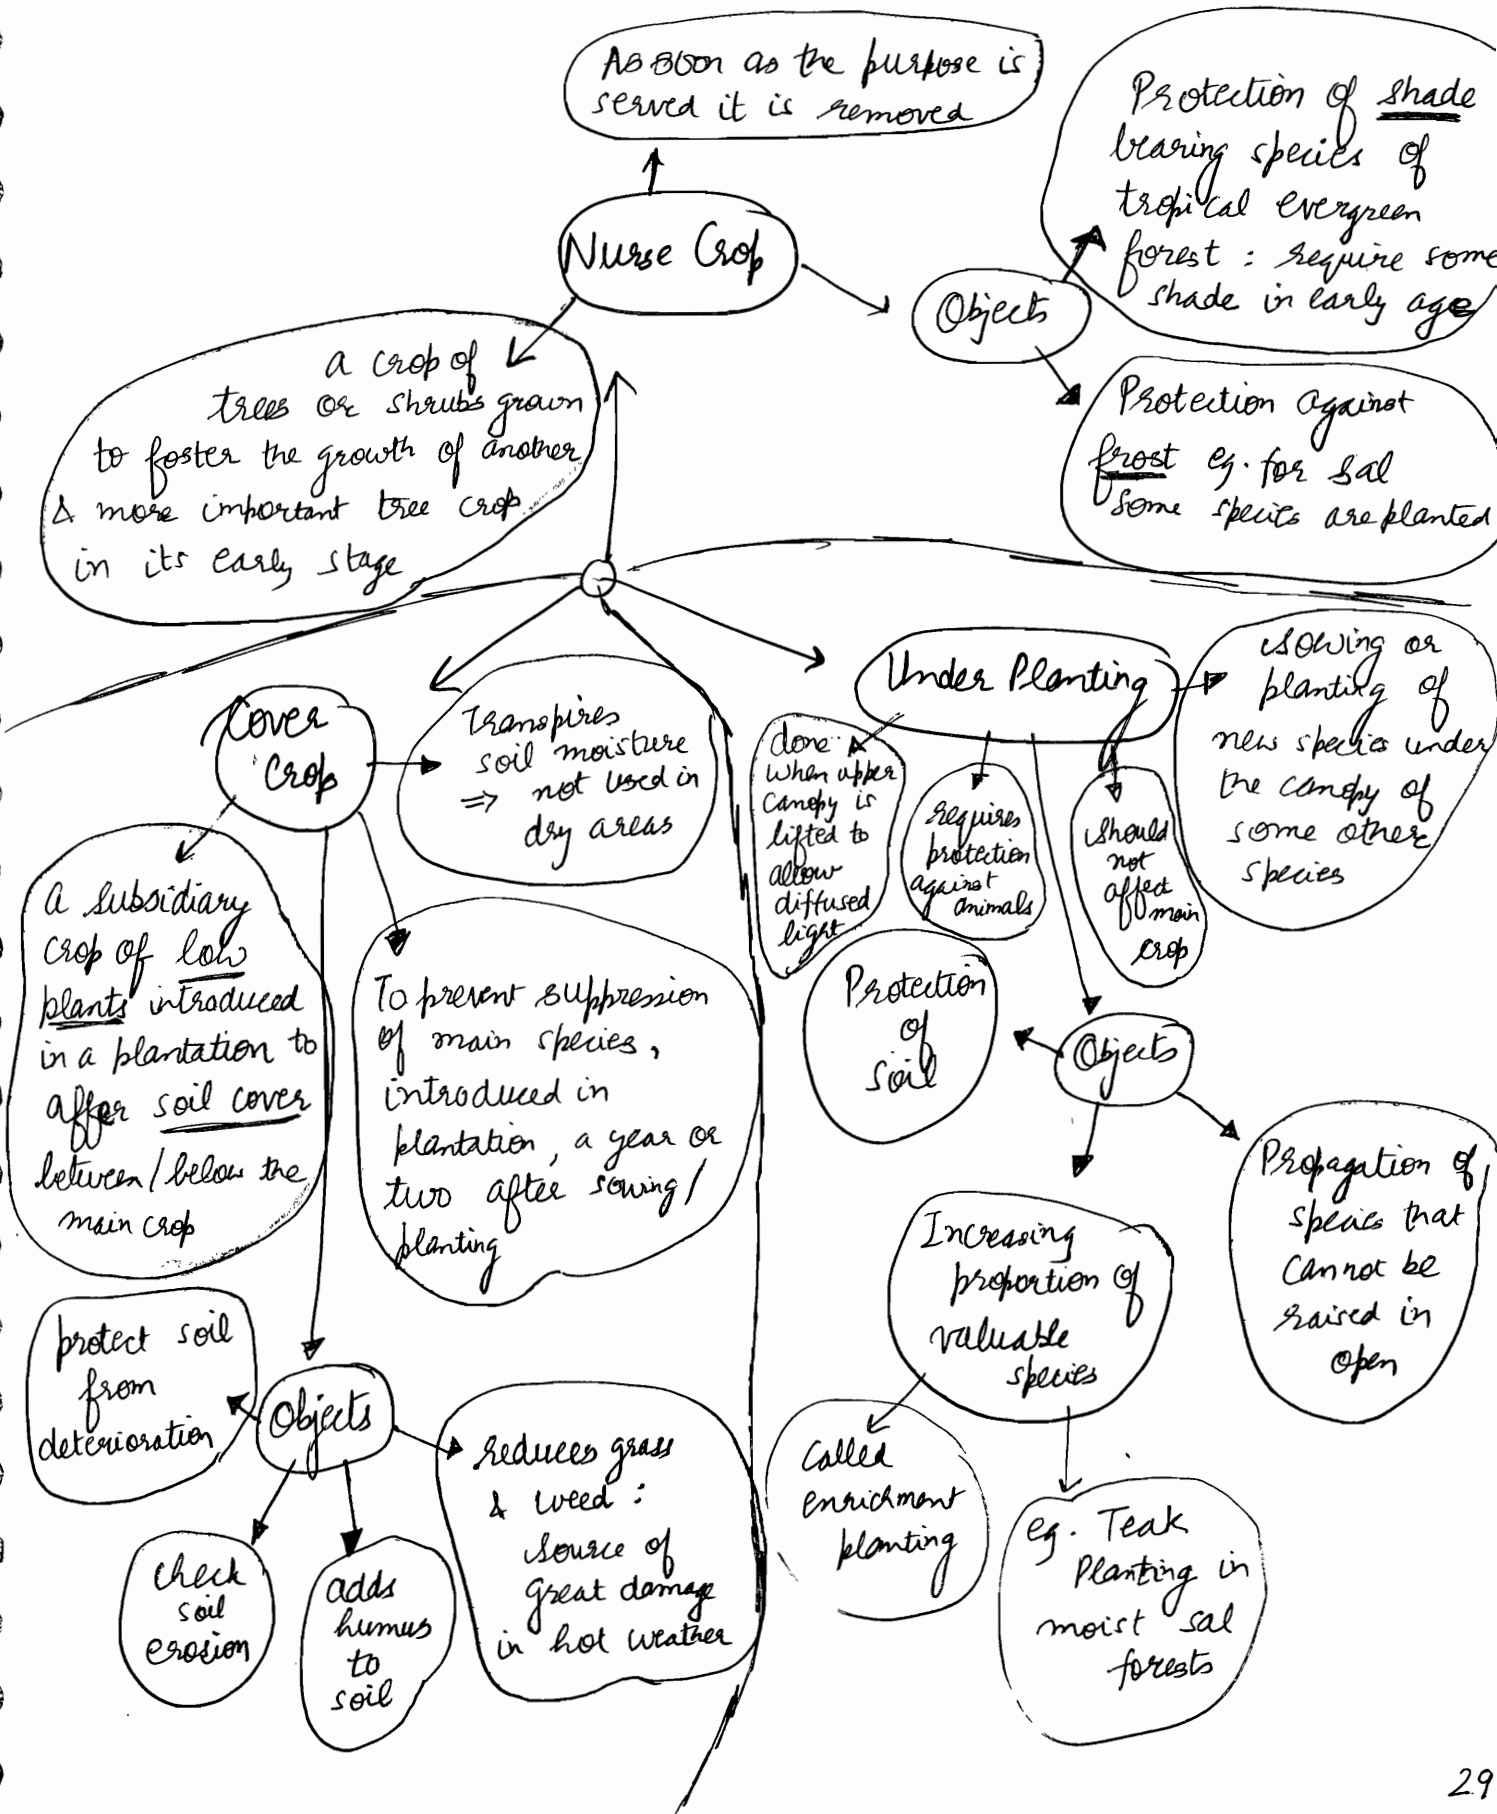 As soon as the purpose is
served it is removed
Nurse Crop
Objects
Protection of shade
bearing species of
tropical evergreen
forest : require some
shade in early age
Protection against
frost eg. for sal
some species are planted
a crop of
trees or shrubs grown
to foster the growth of another
& more important tree crop
in its early stage
Cover
Crop
Transpires
soil moisture
⇒ not used in
dry areas
a subsidiary
crop of low
plants introduced
in a plantation to
affer soil cover
between/below the
main crop
To prevent suppression
of main species,
introduced in
plantation, a year or
two after sowing/
planting
Objects
protect soil
from
deterioration
check
soil
erosion
adds
humus
to
soil
reduces grass
& weed :
source of
great damage
in hot weather
Under Planting
sowing or
planting of
new species under
the canopy of
some other
species
done
when upper
canopy is
lifted to
allow
diffused
light
requires
protection
against
animals
should
not
affect
main
crop
Objects
Protection
of
soil
Increasing
proportion of
valuable
species
Propagation of
species that
cannot be
raised in
open
Called
enrichment
planting
eg. Teak
Planting in
moist sal
forests
29